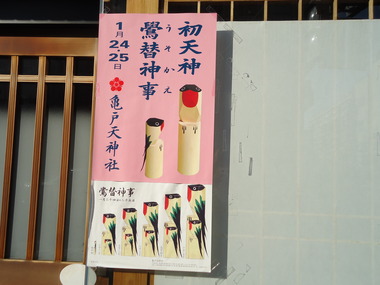 初天神
鷽替神事
うそかえ
1月
24・25日
亀戸天神社
鷽替神事